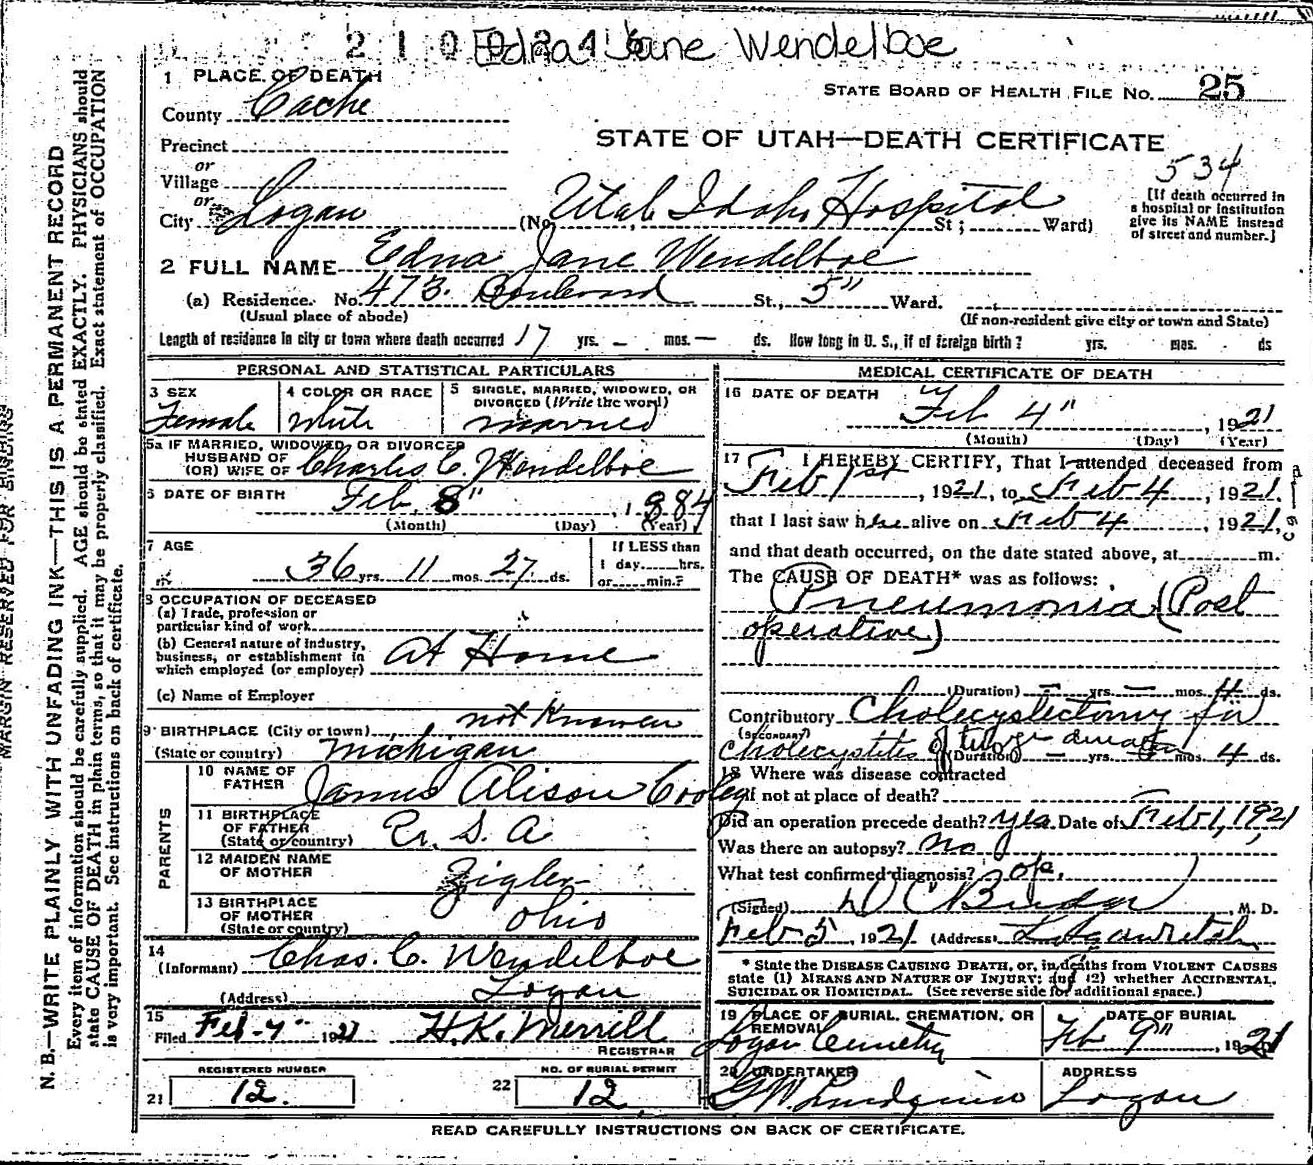 Edna Jane Wendelboe
1 PLACE OF DEATH
County Cache
STATE BOARD OF HEALTH FILE NO. 25
STATE OF UTAH—DEATH CERTIFICATE
534
Precinct
or
Village
or
City Logan (No. Utah Idaho Hospital St; Ward)
[If death occurred in
a hospital or institution
give its NAME instead
of street and number.]
2 FULL NAME Edna Jane Wendelboe
(a) Residence. No. 473 Boulevard St., 5" Ward.
(Usual place of abode)
(If non-resident give city or town and State)
Length of residence in city or town where death occurred 17 yrs. – mos. – ds. How long in U. S., if of foreign birth? yrs. mos. ds
PERSONAL AND STATISTICAL PARTICULARS
3 SEX
Female
4 COLOR OR RACE
White
5 SINGLE, MARRIED, WIDOWED, OR
DIVORCED (Write the word)
married
5a IF MARRIED, WIDOWED, OR DIVORCED
HUSBAND OF
(OR) WIFE OF Charles C. Wendelboe
6 DATE OF BIRTH Feb. 8" , 1884
(Month) (Day) (Year)
7 AGE
36 yrs. 11 mos. 27 ds.
If LESS than
1 day hrs.
or min.?
8 OCCUPATION OF DECEASED
(a) Trade, profession or
particular kind of work
(b) General nature of industry,
business, or establishment in
which employed (or employer) At Home
(c) Name of Employer
9 BIRTHPLACE (City or town) not Known
(State or country) Michigan
PARENTS
10 NAME OF
FATHER James Alison Cooley
11 BIRTHPLACE
OF FATHER
(State or country) U. S. A
12 MAIDEN NAME
OF MOTHER Zigler
13 BIRTHPLACE
OF MOTHER
(State or country) Ohio
14
(Informant) Chas. C. Wendelboe
(Address) Logan
15
Filed Feb-7" 1921 H. K. Merrill
REGISTRAR
REGISTERED NUMBER
21 12.
NO. OF BURIAL PERMIT
22 12
MEDICAL CERTIFICATE OF DEATH
16 DATE OF DEATH Feb 4" , 1921
(Month) (Day) (Year)
17 I HEREBY CERTIFY, That I attended deceased from
Feb 1st , 1921, to Feb 4 , 1921
that I last saw her alive on Feb 4 , 1921,
and that death occurred, on the date stated above, at m.
The CAUSE OF DEATH* was as follows:
Pneumonia (Post
operative)
(Duration) – yrs. – mos. 4 ds.
Contributory Cholecystectomy for
(SECONDARY)
Cholecystites of
(Duration) – yrs. – mos. 4 ds.
18 Where was disease contracted
if not at place of death?
Did an operation precede death? yes Date of Feb 1, 1921
Was there an autopsy? no
What test confirmed diagnosis? op.
(Signed) D C Budge , M. D.
Feb 5 , 1921 (Address) Logan Utah
* State the DISEASE CAUSING DEATH, or, in deaths from VIOLENT CAUSES
state (1) MEANS AND NATURE OF INJURY; and (2) whether ACCIDENTAL,
SUICIDAL OR HOMICIDAL. (See reverse side for additional space.)
19 PLACE OF BURIAL, CREMATION, OR
REMOVAL
Logan Cemetry
DATE OF BURIAL
Feb 9" , 1921
20 UNDERTAKER
G W Lindquist
ADDRESS
Logan
READ CAREFULLY INSTRUCTIONS ON BACK OF CERTIFICATE.
MARGIN RESERVED FOR BINDING
N. B.—WRITE PLAINLY WITH UNFADING INK—THIS IS A PERMANENT RECORD
Every item of information should be carefully supplied. AGE should be stated EXACTLY. PHYSICIANS should
state CAUSE OF DEATH in plain terms, so that it may be properly classified. Exact statement of OCCUPATION
is very important. See instructions on back of certificate.